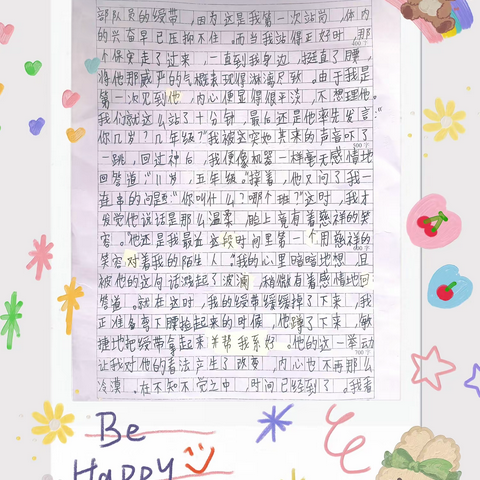 部队员的绶带，因为这是我第一次站岗，体内
的兴奋早已压抑不住。而当我站得正好时，那
个保安走了过来，一直到我身边，挺直了腰，
将他那威严的气概表现得淋漓尽致。由于我是
第一次见到他，内心便显得很平淡，不想理他。
我们就这么站了十分钟，最后还是他率先发言："
你几岁？几年级？"我被这突如其来的声音吓了
500字
一跳，回过神后，我便像机器一样毫无感情地
回答道："11岁，五年级。"接着，他又问了我一
连串的问题："你叫什么？哪个班？"这时，我才
发觉他说话是那么温柔，脸上竟有着慈祥的笑
容。"他还是我最近这段时间里第一个用慈祥的
笑容对着我的陌生人。"我的心里暗暗地想，且
被他的这句话激起了波澜，稍微有着感情地回
答道。就在这时，我的绶带缓缓掉了下来，我
正准备弯下腰捡起来的时候，他蹲了下来，敏
捷地把绶带拿起来并帮我系好。他的这一举动
700字
让我对他的看法产生了改变，内心也不再那么
冷漠。在不知不觉之中，时间已经到了。我看
Be
Happy